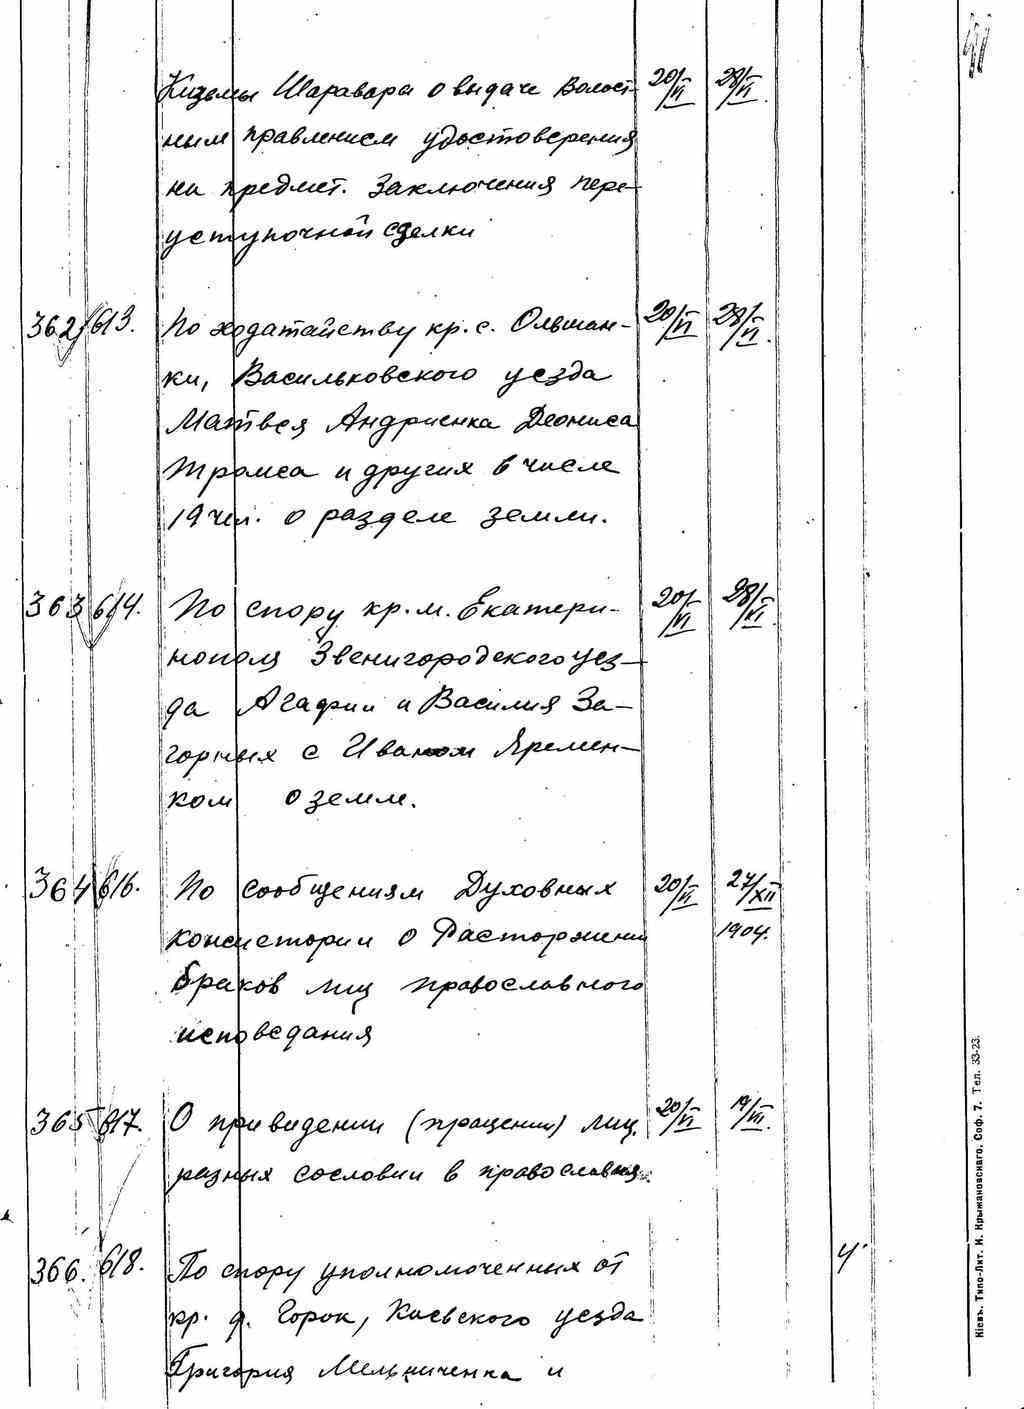 Кизьмы Шаравара о выдаче Волост- 20/VI 28/VI.
ным правлением удостоверения
на предмет. Заключения пере-
уступочной сделки
362 613. По ходатайству кр. с. Ольшан- 20/VI 28/VI.
ки, Васильковского уезда
Матвея Андриенка Деониса
и других в числе
19 чел. о разделе земли.
363 614. По спору кр. м. Екатери- 20/VI 28/VI.
нополя Звенигородского уез-
да Агафии и Василия За-
горных с Иваном Яремен-
ком о земле.
364 616. По сообщениям Духовных 20/VI 27/XII
консистории о Расторжении 1904.
браков лиц православного
исповедания
365 617. О приведении (пращении) лиц. 20/VI 19/III.
разных сословии в православия.
366. 618. По спору уполномоченных от 4
кр. д. Горок, Киевского уезда
Григория Мельниченка и
Кіевъ. Типо-Лит. И. Крыжановскаго. Соф. 7. Тел. 33-23.